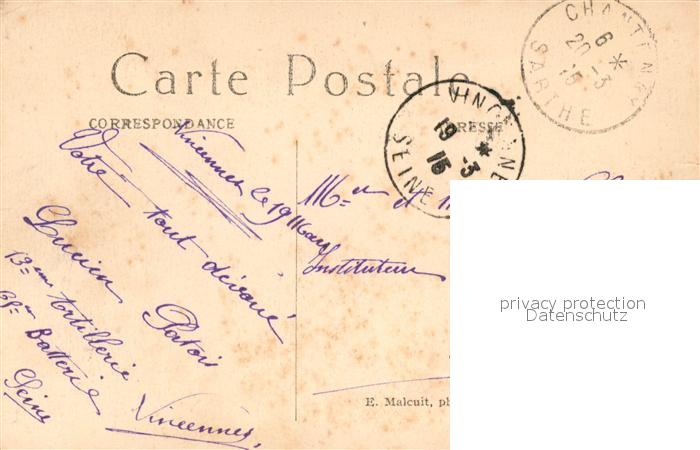 Carte Postale
CORRESPONDANCE
ADRESSE
CHANTENAY
6 *
20 -3
15
SARTHE
VINCENNES
19 *
-3
15
SEINE
Vincennes le 19 Mars
Votre tout dévoué
Lucien Patois
13eme Artillerie
Batterie
Vincennes,
Seine
Mr et M
Instituteur
E. Malcuit, ph
privacy protection
Datenschutz